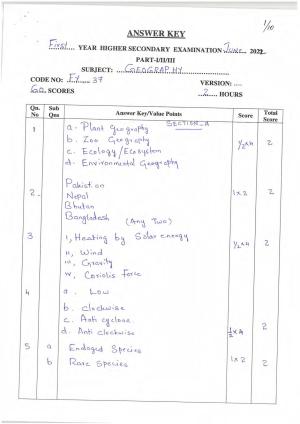 1/10
ANSWER KEY
First YEAR HIGHER SECONDARY EXAMINATION June 2022
PART-I/II/III
SUBJECT: GEOGRAPHY
CODE NO: FY 37 VERSION: ....
60 SCORES 2 HOURS
Qn. No Sub Qns Answer Key/Value Points Score Total Score
SECTION_A
1 a- Plant Geography
b. Zoo Geography ½x4 2
c. Ecology/Ecosystem
d- Environmental Geography
2 Pakistan 1x2 2
Nepal
Bhutan
Bangladesh (Any Two)
3 i, Heating by Solar energy ½x4 2
ii, Wind
iii, Gravity
iv, Coriolis Force
4 a. Low
b. clockwise
c. Anti cyclone
d. Anti clockwise ½x4 2
5 a Endaged Species
b Rare Species 1x2 2